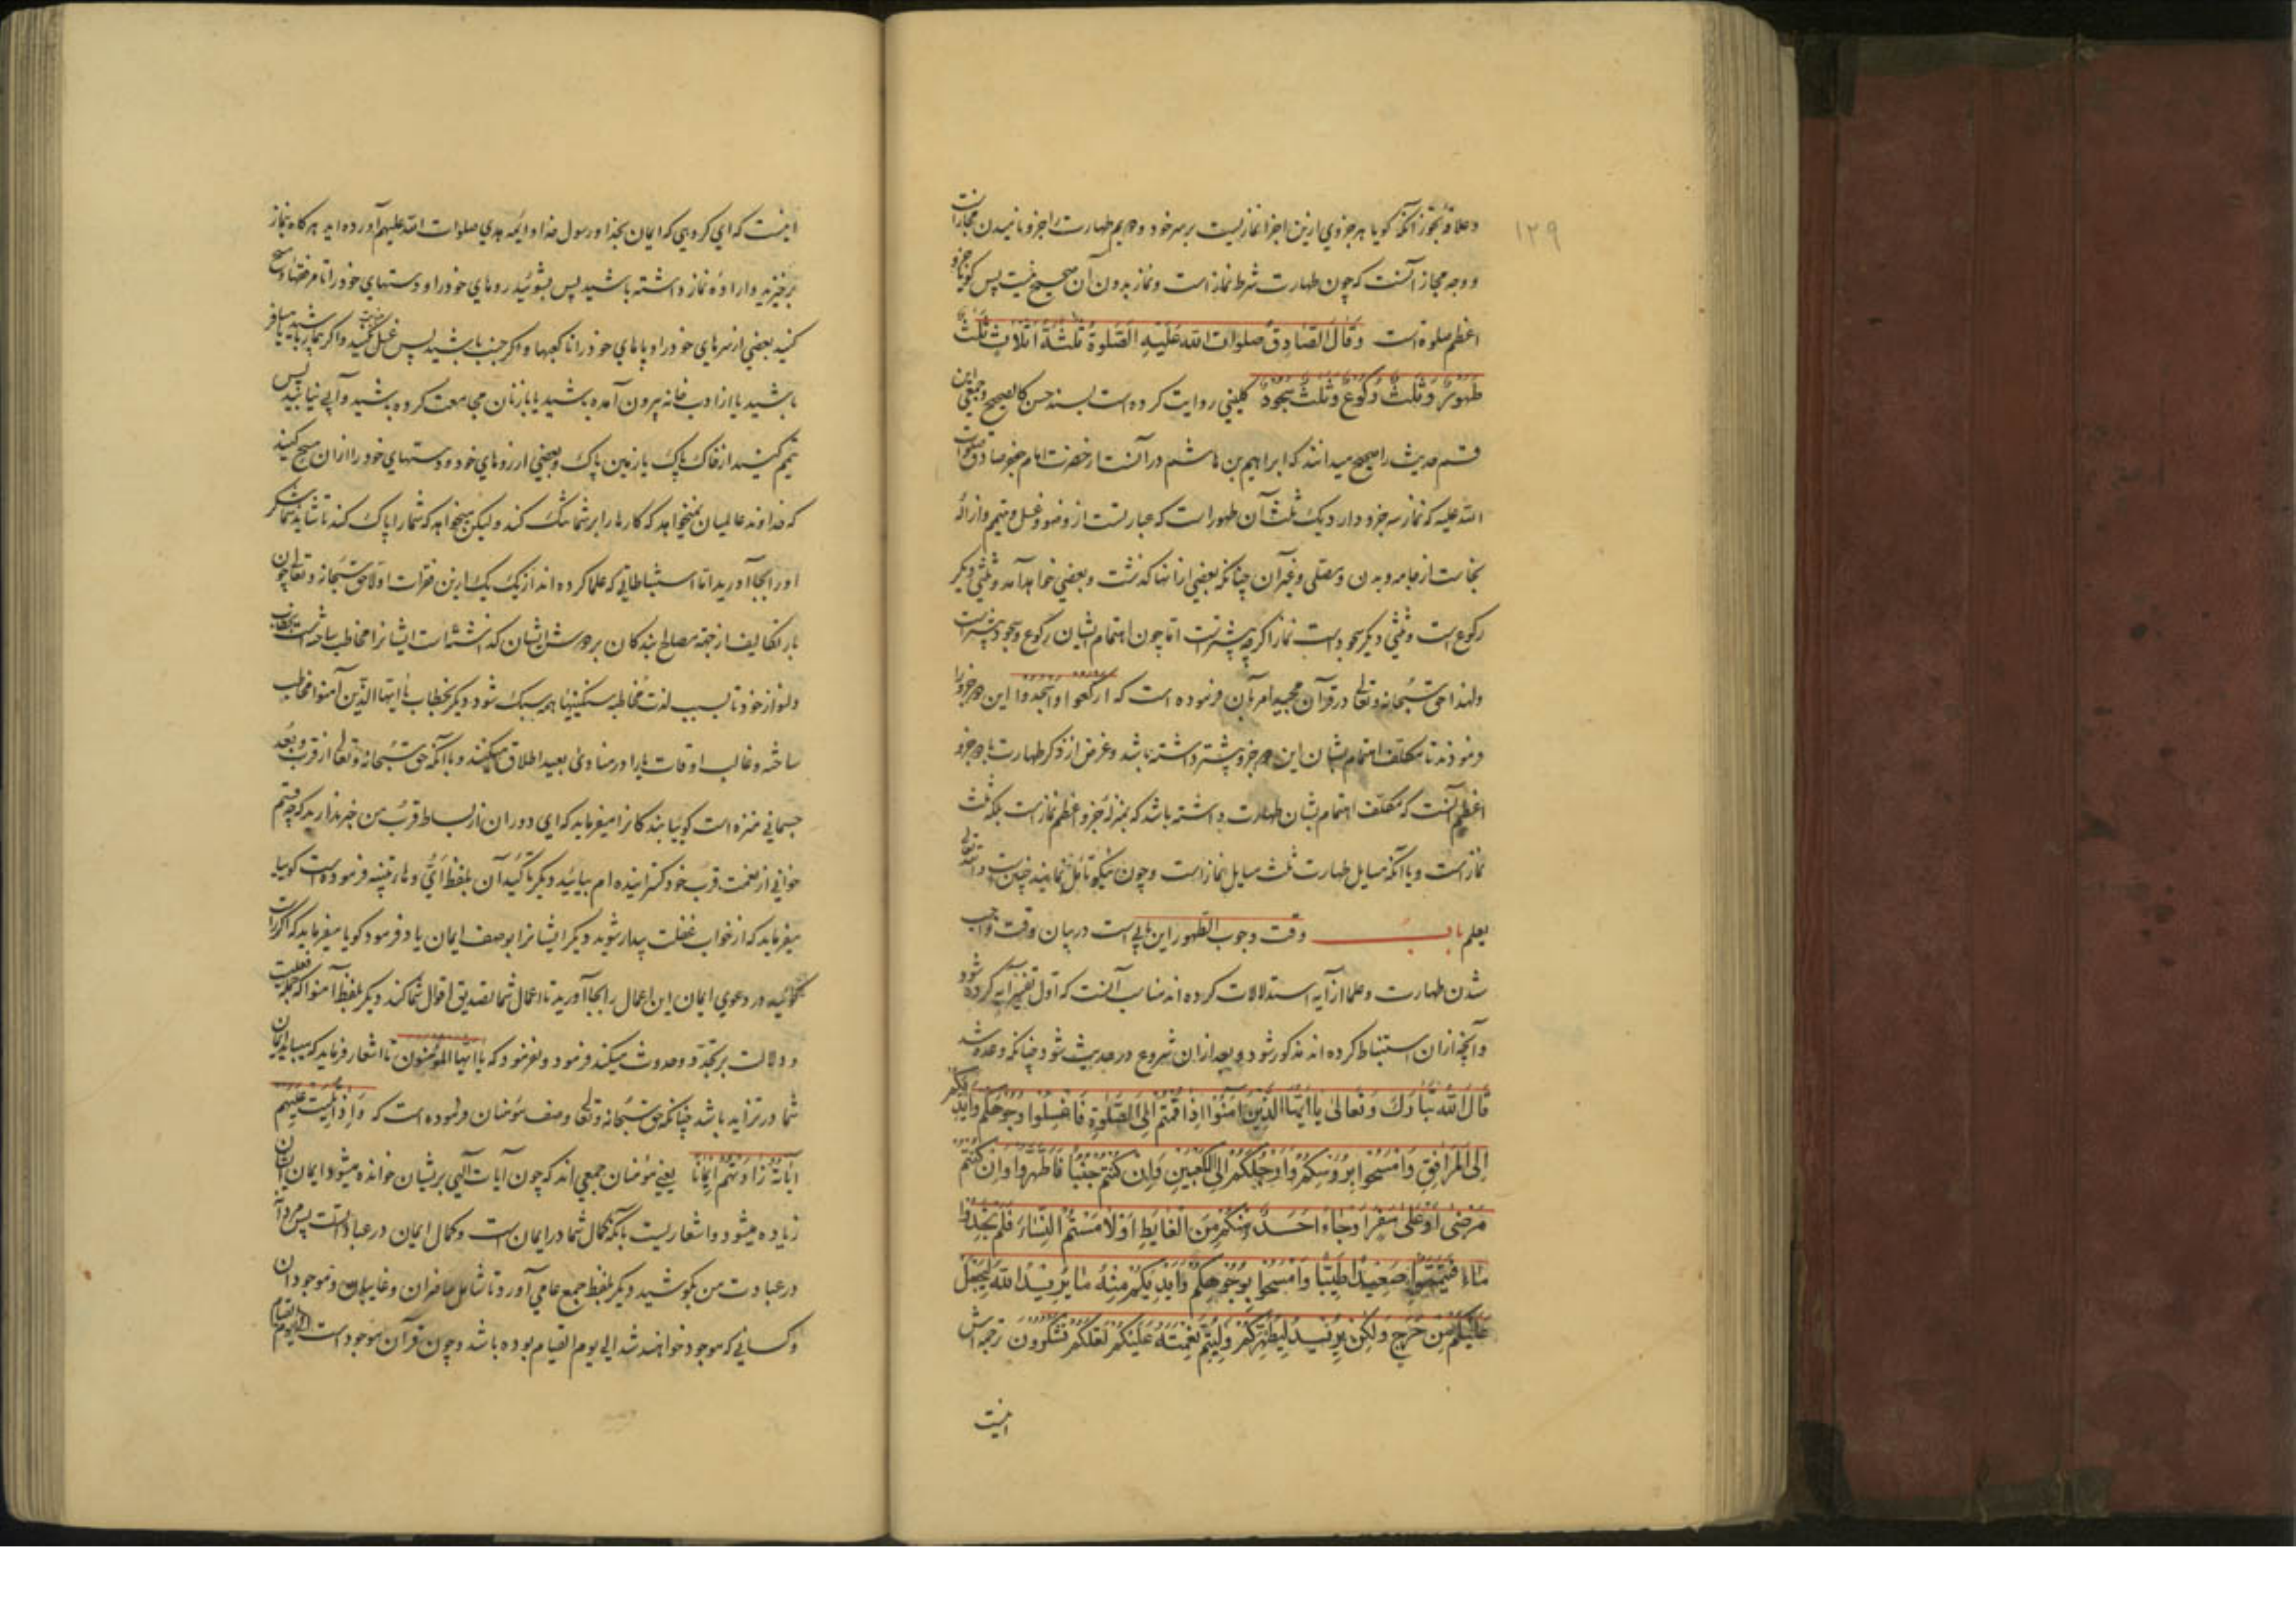 ۱۲۹
وعلاقه تجوز آنکه گویا هر جزوی ازین اجزا نمازیست بر سر خود و دویم طهارت را جزو نامیدن مجازاست
و وجه مجاز آنست که چون طهارت شرط نماز است و نماز بدون آن صحیح نیست پس گویا جزو
اعظم صلوة است وَقَالَ الصَّادِقُ صلوات الله عَلَيْهِ الصَّلوةُ ثَلٰثَةُ اَثْلَاثٍ ثُلُثٌ
طَهُورٌ وَثُلُثٌ رُكُوعٌ وَثُلُثٌ سُجُودٌ کلینی روایت کرده است بسند حسن کالصحیح و جمعی این
قسم حدیث را صحیح میدانند که ابراهیم بن هاشم در آنست از حضرت امام جعفر صادق صلوات
الله علیه که نماز سه جزو دارد یک ثلث آن طهور است که عبارتست از وضو و غسل و تیمم و ازاله
نجاست از جامه و بدن و مصلی و غیر آن چنانکه بعضی از آنها گذشت و بعضی خواهد آمد و ثلثی دیگر
رکوع است و ثلثی دیگر سجود است نماز اگرچه بیشترست اما چون اهتمام بشان رکوع و سجود بیشترست
ولهذا حق سبحانه وتعالی در قرآن مجید امر بآن فرموده است که ارْكَعُوا وَاسْجُدُوا این دو جزو را
فرمودند تا مکلف اهتمام بشان این دو جزو بیشتر داشته باشد و غرض از ذکر طهارت با دو جزو
اعظم آنست که مکلف اهتمام بشان طهارت داشته باشد که بمنزله جزو اعظم نماز است بلکه ثلث
نماز است و یا آنکه مسایل طهارت ثلث مسایل نماز است و چون نیکو تامل نمایند چنین است والله تعالی
یعلم باب وقت وجوب الطهور این بابی است در بیان وقت واجب
شدن طهارت و علما از آیه استدلالات کرده اند مناسب آنست که اول تفسیر آیه کرده شود
و آنچه از آن استنباط کرده اند مذکور شود و بعد از آن شروع در حدیث شود چنانکه وعده شد
قَالَ اللهُ تَبَارَكَ وَتَعَالىٰ يَا اَيُّهَا الَّذِينَ اٰمَنُوا اِذَا قُمْتُمْ اِلَى الصَّلوةِ فَاغْسِلُوا وُجُوهَكُمْ وَاَيْدِيَكُمْ
اِلَى الْمَرَافِقِ وَامْسَحُوا بِرُؤُسِكُمْ وَاَرْجُلَكُمْ اِلَى الْكَعْبَيْنِ وَاِنْ كُنْتُمْ جُنُبًا فَاطَّهَّرُوا وَاِنْ كُنْتُمْ
مَرْضىٰ اَوْ عَلىٰ سَفَرٍ اَوْ جَاءَ اَحَدٌ مِنْكُمْ مِنَ الْغَايِطِ اَوْ لَامَسْتُمُ النِّسَاءَ فَلَمْ تَجِدُوا
مَاءً فَتَيَمَّمُوا صَعِيدًا طَيِّبًا وَامْسَحُوا بِوُجُوهِكُمْ وَاَيْدِيكُمْ مِنْهُ مَا يُرِيدُ اللهُ لِيَجْعَلَ
عَلَيْكُمْ مِنْ حَرَجٍ وَلٰكِنْ يُرِيدُ لِيُطَهِّرَكُمْ وَلِيُتِمَّ نِعْمَتَهُ عَلَيْكُمْ لَعَلَّكُمْ تَشْكُرُونَ ترجمه اش
اینست
اینست که ای گروهی که ایمان بخدا و رسول خدا و ایمه هدی صلوات الله علیهم آورده اید هرگاه بنماز
برخیزید و اراده نماز داشته باشید پس بشوئید روهای خود را و دستهای خود را تا مرفقها و مسح
کنید بعضی از سرهای خود را و پاهای خود را تا کعبها و اگر جنب باشید پس غسل کنید و اگر بیمار باشید یا مسافر
باشید یا از ادب خانه بیرون آمده باشید یا با زنان مجامعت کرده باشید و آبی نیابید پس
تیمم کنید از خاک پاک یا زمین پاک و بعضی از روهای خود و دستهای خود را از آن مسح کنید
که خداوند عالمیان نمیخواهد که کار را بر شما تنگ کند ولیکن میخواهد که شما را پاک کند تا شاید شما شکر
او را بجا آورید اما استنباطاتی که علما کرده اند از یک یک ازین فقرات اولا حق سبحانه وتعالی چون
بار تکالیف از جهة مصالح بندگان بر دوش ایشان گذاشته است ایشانرا مخاطب ساخته است بخطاب
دلنواز خود تا بسبب لذت مخاطبه سنگینیها همه سبک شود دیگر بخطاب یا ایها الذین آمنوا مخاطب
ساخته و غالب اوقات یا را در منادی بعید اطلاق میکنند و با آنکه حق سبحانه وتعالی از قرب و بعد
جسمانی منزه است گوییا بندگانرا میفرماید که ای دوران از بساط قرب من خبر ندارید که چه قسم
خوانی از نعمت قرب خود گسترانیده ام بیائید دیگر تاکید آن بلفظ اَیُّ و های تنبیه فرموده است گوییا
میفرماید که از خواب غفلت بیدار شوید دیگر ایشانرا بوصف ایمان یاد فرمود گویا میفرماید که اگر راست
میگوئید در دعوی ایمان این اعمال را بجا آورید تا اعمال شما تصدیق اقوال شما کند دیگر بلفظ آمنوا که جمله فعلیست
و دلالت بر تجدد و حدوث میکند فرمود و نفرمود که یا ایها المؤمنون تا اشعار فرماید که میباید ایمان
شما در تزاید باشد چنانکه حق سبحانه وتعالی وصف مؤمنان فرموده است که وَاِذَا تُلِيَتْ عَلَيْهِمْ
اٰيَاتُهُ زَادَتْهُمْ اِيمَانًا یعنی مؤمنان جمعی اند که چون آیات الهی بریشان خوانده میشود ایمان ایشان
زیاده میشود و اشعاریست بآنکه کمال شما در ایمان است و کمال ایمان در عبادتست پس
در عبادت من بکوشید دیگر بلفظ جمع عامی آورد تا شامل حاضران و غایبان و موجودان
و کسانی که موجود خواهند شد الی یوم القیام بوده باشد و چون قرآن موجود است الی یوم القیام